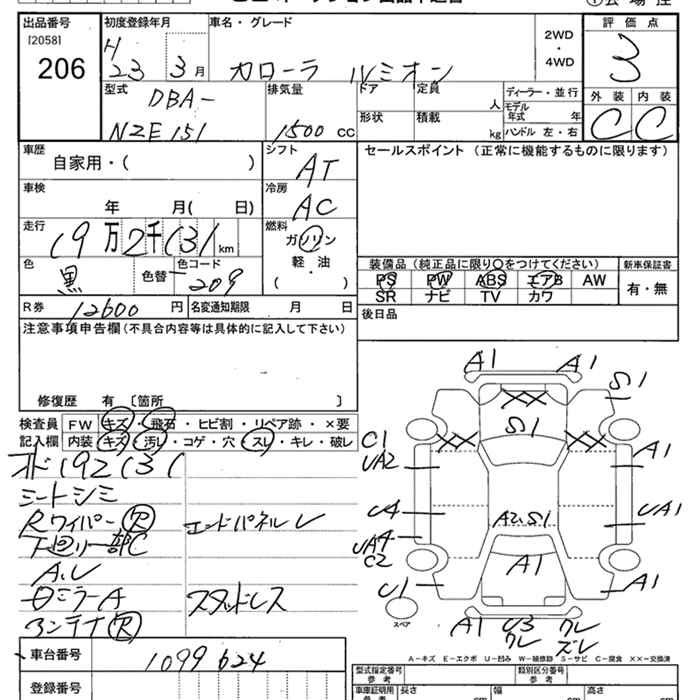 出品番号 初度登録年月 車名・グレード 2WD ・ 4WD 評価点
[2058] H
206 23 3月 カローラ ルミオン 3
型式 DBA- 排気量 ドア 定員 人 ディーラー・並行 外装 内装
NZE151 1500 CC 形状 積載 kg モデル年式 年 C C
ハンドル 左・右
車歴 シフト セールスポイント (正常に機能するものに限ります)
自家用・( ) AT
車検 冷房
年 月( 日) AC
走行 燃料
19万2千131km ガソリン
色 黒 色替 色コード 209 軽・油
( )
装備品 (純正品に限り〇をつけてください) 新車保証書
PS PW ABS エアB AW 有・無
SR ナビ TV カワ
R券 12600 円 名変通知期限 月 日 後日品
注意事項申告欄 (不具合内容等は具体的に記入して下さい)
修復歴 有 〔箇所 〕
検査員 FW キズ・飛石・ヒビ割・リペア跡・×要
記入欄 内装 キズ・汚レ・コゲ・穴・スレ・キレ・破レ
オド192131
シートシミ
Rワイパー欠 エンドパネルレ
下回り一部C
A.レ
ミラーA スタッドレス
アンテナ欠
A1 A1 S1
S1
C1 UA2 A1
U4 A2.S1 UA1
UA4 C2 A1
U1 A1
スペア A1 U3 クレ
クレ ズレ
車台番号 1099624
A-キズ E-エクボ U-凹み W-補修跡 S-サビ C-腐食 ××-交換済
登録番号 型式指定番号 参考 類別区分番号 参考
車庫証明用 参考 長さ cm 幅 cm 高さ cm